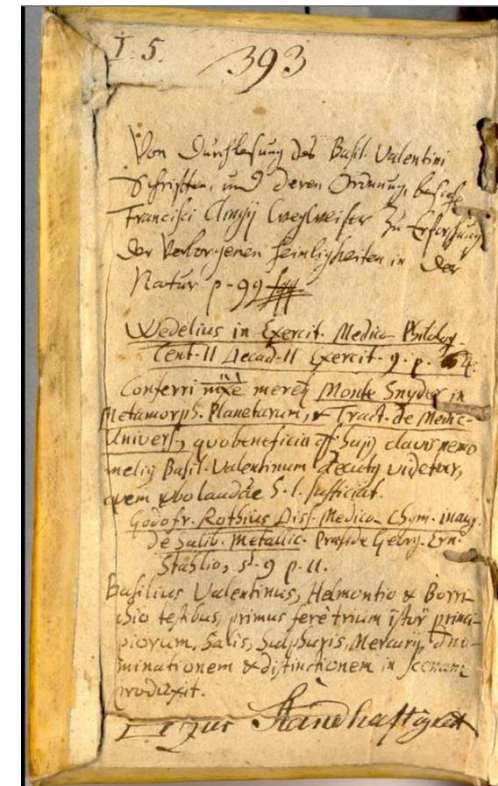 I 5.
393
Von Durchlesung des Basil. Valentini
Schrifften, und deren Ordnung, besiehe
Francisci Clingij Wegweiser zu Erforschung
der Verborgenen Heimligkeiten in der
Natur p. 99
Wedelius in Exercit. Medico Philolog.
Cent. II Decad. II Exercit. 9. p. 64.
Conferri mxe meret Monte Snyder in
Metamorph. Planetarum, & Tract. de Medic.
Univers., quo beneficio
Basil. Valentinum videtur,
quem sufficiat.
Godofr. Rothius Diss. Medico Chym. inaug.
de Salib. Metallic. Praeside Georg. Ern.
Stahlio, p. 11.
Basilius Valentinus, Helmontio & Borri
chio testibus, primus fere trium istor princi
piorum, Salis, Sulphuris, Mercurij, dno
minationem & distinctionem in scenam
produxit.
zur Standhafftigkeit